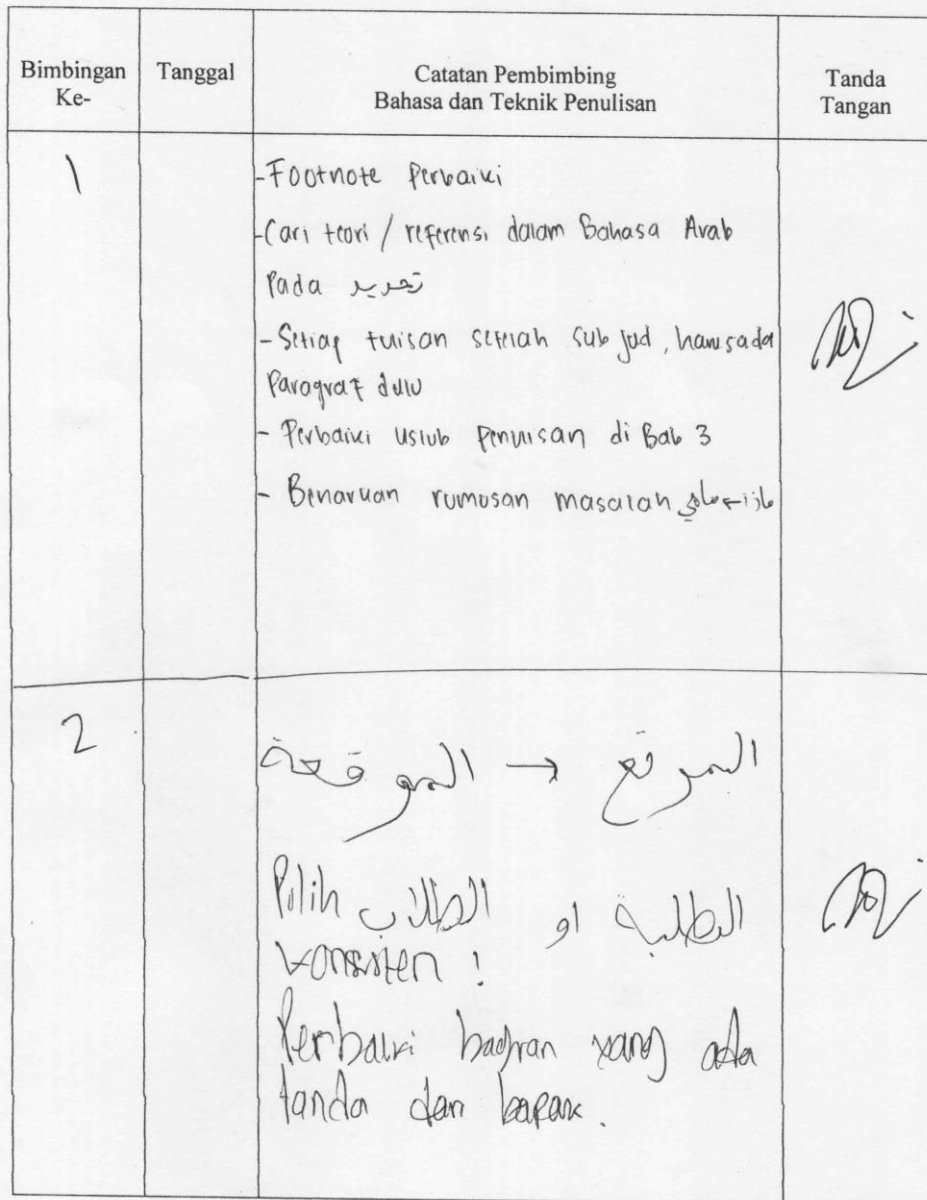 Bimbingan Ke-
Tanggal
Catatan Pembimbing
Bahasa dan Teknik Penulisan
Tanda Tangan
1
-Footnote Perbaiki
-Cari teori / referensi dalam Bahasa Arab
Pada
- Setiap tulisan setelah sub jud, harus ada
Paragraf dulu
- Perbaiki uslub Penulisan di Bab 3
- Benarkan rumusan masalah
2
الموقع → الموقعة
Pilih الطلاب او الطلبة
konsisten !
Perbaiki bagian yang ada
tanda dari bapak.